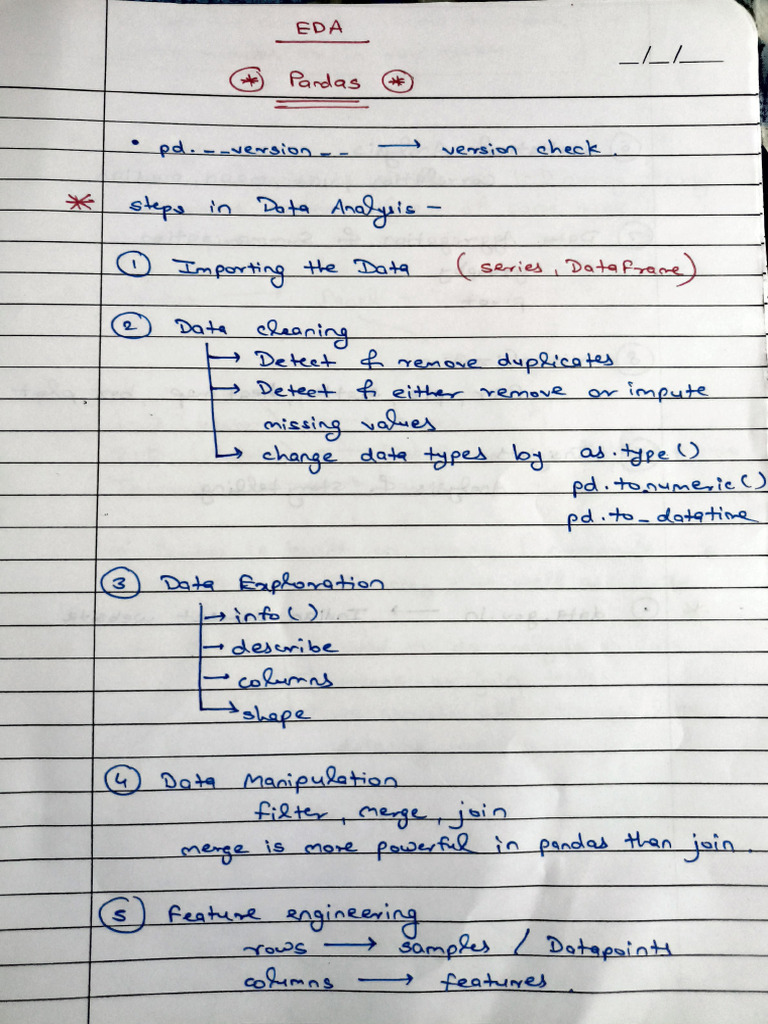 EDA
_/_/__
* Pandas *
• pd.__version__ → version check.
* steps in Data Analysis -
① Importing the Data (series, DataFrame)
② Data cleaning
→ Detect & remove duplicates
→ Detect & either remove or impute
missing values
→ change data types by as.type()
pd.to_numeric()
pd.to_datatime
③ Data Exploration
→ info()
→ describe
→ columns
→ shape
④ Data Manipulation
filter, merge, join
merge is more powerful in pandas than join.
⑤ Feature engineering
rows → samples / Datapoints
columns → features.